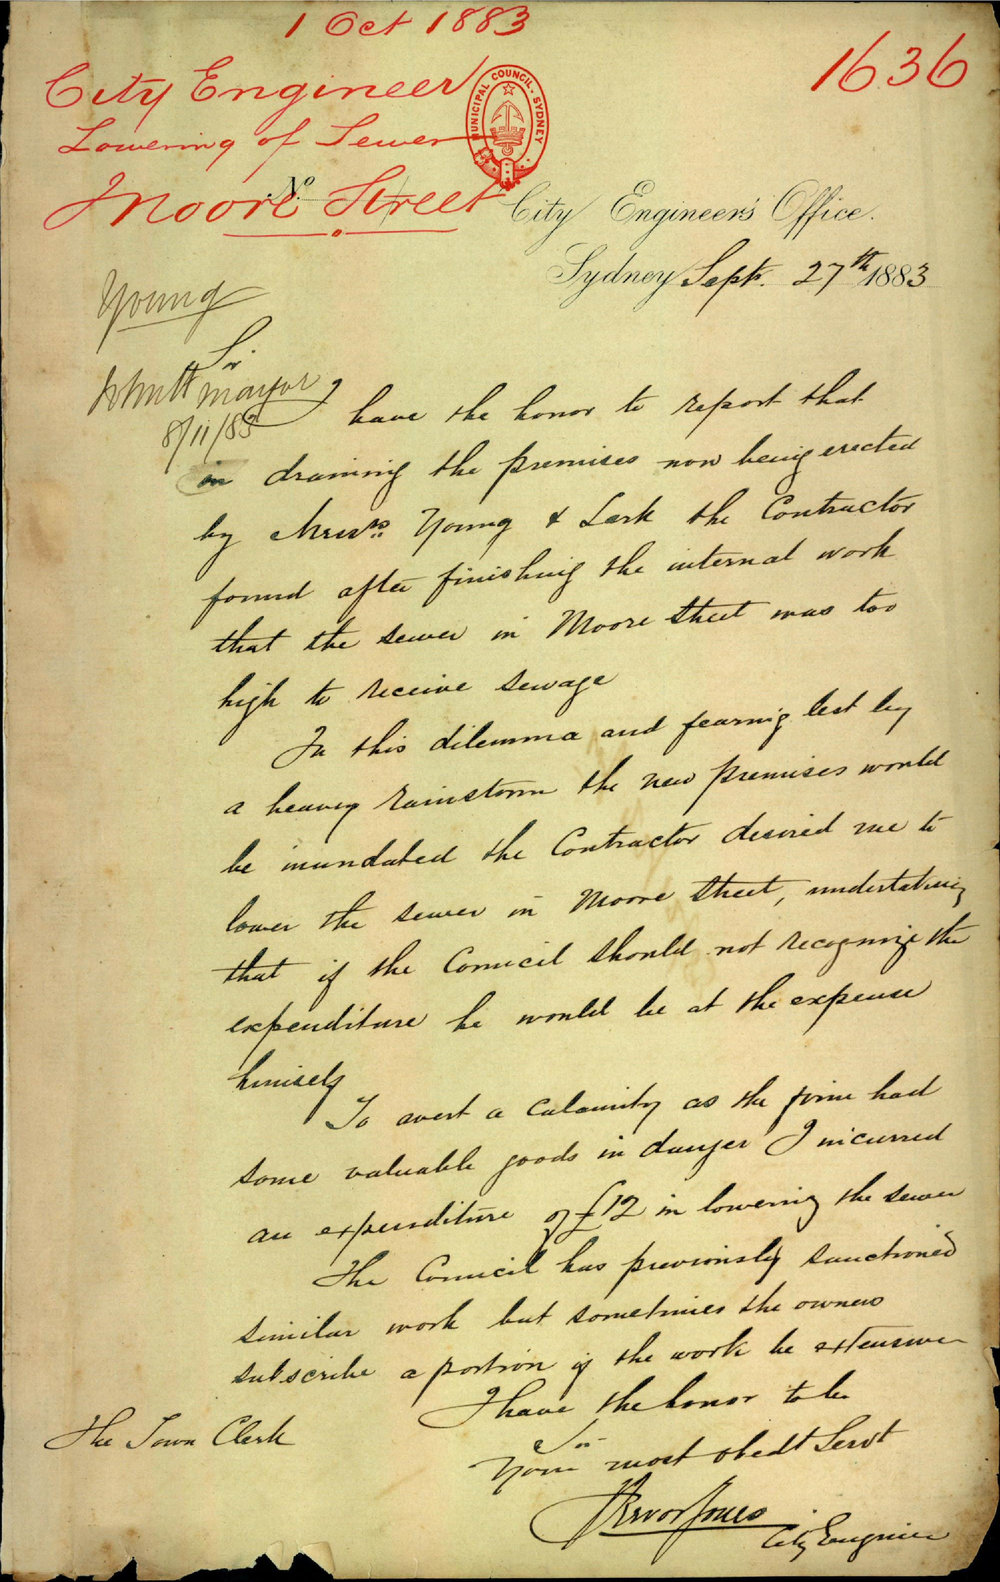 1 Oct 1883
1636
City Engineer
Lowering of Sewer
Moore Street
MUNICIPAL COUNCIL. SYDNEY
No
City Engineer's Office.
Sydney Sept. 27th 1883
Young
Sir
Mayor
8/11/83
I have the honor to report that
in draining the premises now being erected
by Messrs. Young & Lark the Contractor
found after finishing the internal work
that the sewer in Moore Street was too
high to receive sewage
In this dilemma and fearing lest by
a heavy rainstorm the new premises would
be inundated the Contractor desired me to
lower the sewer in Moore Street, undertaking
that if the Council should not recognize the
expenditure he would be at the expense
himself
To avert a calamity as the firm had
some valuable goods in danger I incurred
an expenditure of £12 in lowering the sewer
The Council has previously sanctioned
similar work but sometimes the owners
subscribe a portion if the work be extensive
I have the honor to be
Sir
Your most obedt Servt
Trevor Jones
City Engineer
The Town Clerk